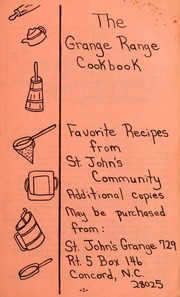 The
Grange Range
Cookbook
Favorite Recipes
from
St. John's
Community
Additional copies
May be purchased
from:
St. John's Grange 729
Rt. 5 Box 146
Concord, N.C.
28025
-1-